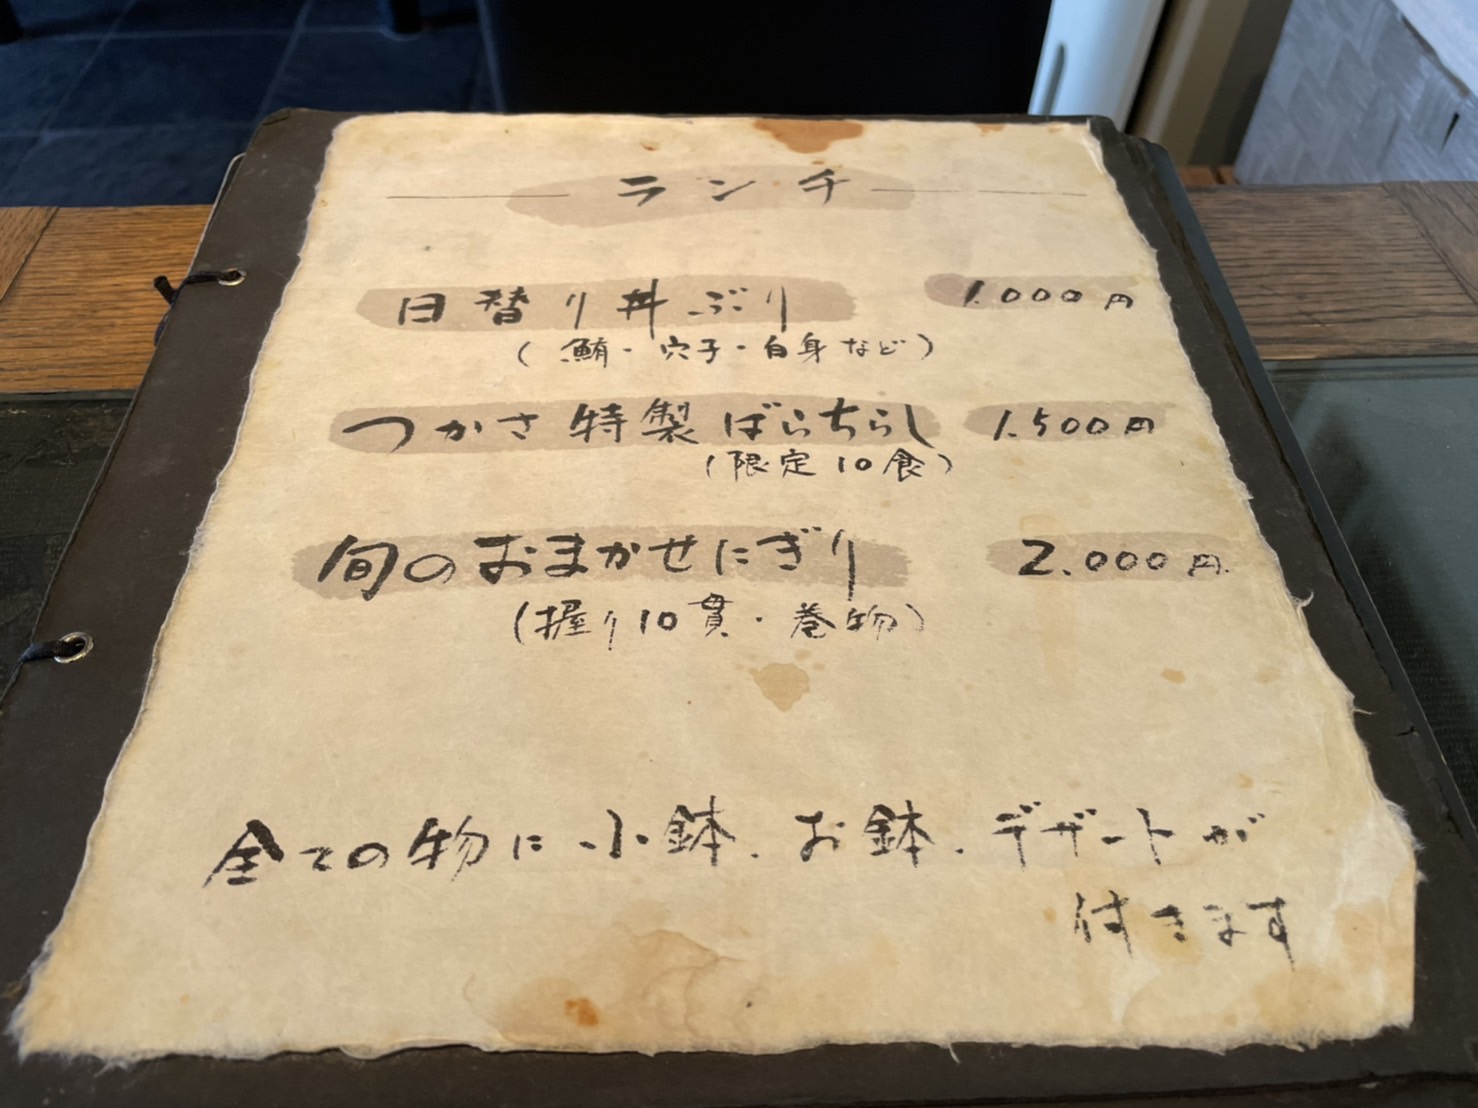 ランチ
日替り丼ぶり 1.000円
(鮪・穴子・白身など)
つかさ特製ばらちらし 1.500円
(限定10食)
旬のおまかせにぎり 2.000円
(握り10貫・巻物)
全ての物に小鉢.お鉢.デザートが
付きます